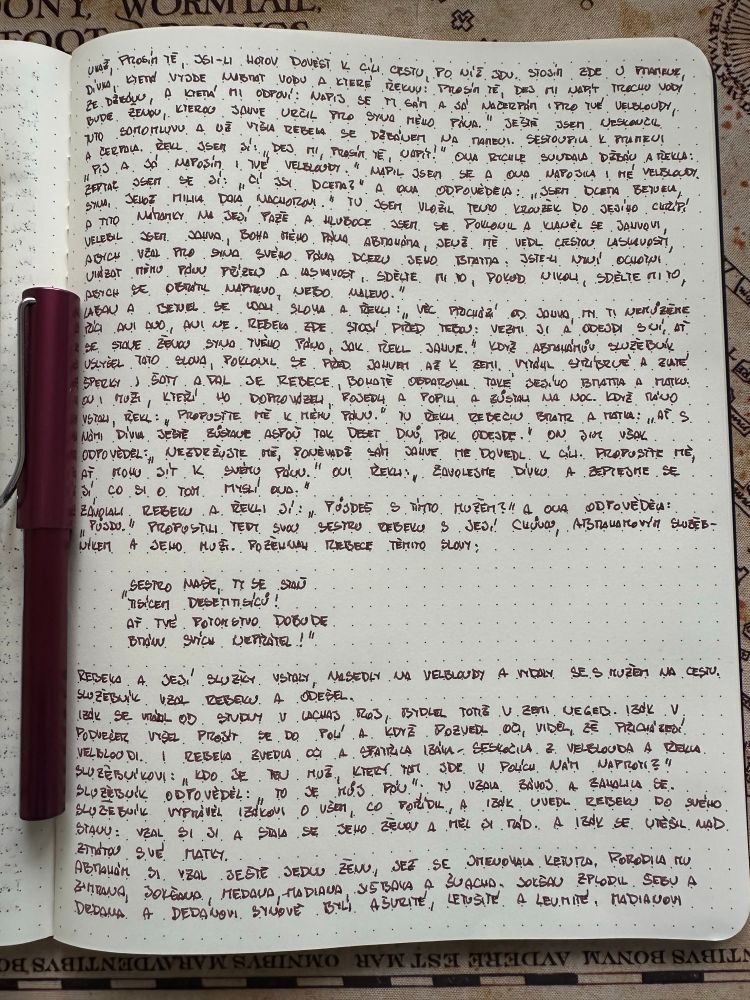 OONY, WORMTAIL,
UKAŽ, PROSÍM TĚ, JSI-LI HOTOV DOVÉST K CÍLI CESTU, PO NÍŽ JDU. STOJÍM ZDE U PRAMENE,
DÍVKA, KTERÁ VYJDE NABRAT VODU A KTERÉ ŘEKNU: PROSÍM TĚ, DEJ MI NAPÍT TROCHU VODY
ZE DŽBÁNU, A KTERÁ MI ODPOVÍ: NAPIJ SE TY SÁM A JÁ NAČERPÁM I PRO TVÉ VELBLOUDY,
BUDE ŽENOU, KTEROU JAHVE URČIL PRO SYNA MÉHO PÁNA." JEŠTĚ JSEM NESKONČIL
TUTO SAMOMLUVU A UŽ VYŠLA REBEKA SE DŽBÁNEM NA RAMENI. SESTOUPILA K PRAMENI
A ČERPALA. ŘEKL JSEM JÍ: „DEJ MI, PROSÍM TĚ, NAPÍT!" ONA RYCHLE SUNDALA DŽBÁN A ŘEKLA:
„PIJ A JÁ NAPOJÍM I TVÉ VELBLOUDY." NAPIL JSEM SE A ONA NAPOJILA I MÉ VELBLOUDY.
ZEPTAL JSEM SE JÍ: „ČÍ JSI DCERA?" A ONA ODPOVĚDĚLA: „JSEM DCERA BETUELA,
SYNA, JEHOŽ MILKA DALA NACHOROVI." TU JSEM VLOŽIL TENTO KROUŽEK DO JEJÍHO CHŘÍPÍ
A TYTO NÁRAMKY NA JEJÍ PAŽE A HLUBOCE JSEM SE POKLONIL A KLANĚL SE JAHVOVI,
VELEBIL JSEM JAHVA, BOHA MÉHO PÁNA ABRAHÁMA, JENŽ MĚ VEDL CESTOU LASKAVOSTI,
ABYCH VZAL PRO SYNA SVÉHO PÁNA DCERU JEHO BRATRA. JSTE-LI NYNÍ OCHOTNI
UKÁZAT MÉMU PÁNU PŘÍZEŇ A LASKAVOST, SDĚLTE MI TO, POKUD NIKOLI, SDĚLTE MI TO,
ABYCH SE OBRÁTIL NAPRAVO, NEBO NALEVO."
LABAN A BETUEL SE UJALI SLOVA A ŘEKLI: „VĚC PŘICHÁZÍ OD JAHVA, MY TI NEMŮŽEME
ŘÍCI ANI ANO, ANI NE. REBEKA ZDE STOJÍ PŘED TEBOU: VEZMI JI A ODEJDI S NÍ, AŤ
SE STANE ŽENOU SYNA TVÉHO PÁNA, JAK ŘEKL JAHVE." KDYŽ ABRAHÁMŮV SLUŽEBNÍK
USLYŠEL TATO SLOVA, POKLONIL SE PŘED JAHVEM AŽ K ZEMI. VYTÁHL STŘÍBRNÉ A ZLATÉ
ŠPERKY I ŠATY A DAL JE REBECE, BOHATĚ OBDAROVAL TAKÉ JEJÍHO BRATRA A MATKU.
ON I MUŽI, KTEŘÍ HO DOPROVÁZELI, POJEDLI A POPILI A ZŮSTALI NA NOC. KDYŽ RÁNO
VSTALI, ŘEKL: „PROPUSŤTE MĚ K MÉMU PÁNU." TU ŘEKLI REBEČIN BRATR A MATKA: „AŤ S
NÁMI DÍVKA JEŠTĚ ZŮSTANE ASPOŇ TAK DESET DNŮ, PAK ODEJDE." ON JIM VŠAK
ODPOVĚDĚL: „NEZDRŽUJTE MĚ, PONĚVADŽ SÁM JAHVE MĚ DOVEDL K CÍLI. PROPUSŤTE MĚ,
AŤ MOHU JÍT K SVÉMU PÁNU." ONI ŘEKLI: „ZAVOLEJME DÍVKU A ZEPTEJME SE
JÍ, CO SI O TOM MYSLÍ ONA."
ZAVOLALI REBEKU A ŘEKLI JÍ: „PŮJDEŠ S TÍMTO MUŽEM?" A ONA ODPOVĚDĚLA:
„PŮJDU." PROPUSTILI TEDY SVOU SESTRU REBEKU S JEJÍ CHŮVOU, ABRAHÁMOVÝM SLUŽEB-
NÍKEM A JEHO MUŽI. POŽEHNALI REBECE TĚMITO SLOVY:
„SESTRO NAŠE, TY SE STAŇ
TISÍCEM DESETITISÍCŮ!
AŤ TVÉ POTOMSTVO DOBUDE
BRÁNU SVÝCH NEPŘÁTEL!"
REBEKA A JEJÍ SLUŽKY VSTALY, NASEDLY NA VELBLOUDY A VYDALY SE S MUŽEM NA CESTU.
SLUŽEBNÍK VZAL REBEKU A ODEŠEL.
IZÁK SE VRÁTIL OD STUDNY V LACHAJ ROJ, BYDLEL TOTIŽ V ZEMI NEGEB. IZÁK V
PODVEČER VYŠEL PROJÍT SE DO POLÍ A KDYŽ POZVEDL OČI, VIDĚL, ŽE PŘICHÁZEJÍ
VELBLOUDI. I REBEKA ZVEDLA OČI A SPATŘILA IZÁKA. SESKOČILA Z VELBLOUDA A ŘEKLA
SLUŽEBNÍKOVI: „KDO JE TEN MUŽ, KTERÝ TAM JDE V POLÍCH NÁM NAPROTI?"
SLUŽEBNÍK ODPOVĚDĚL: „TO JE MŮJ PÁN". TU VZALA ZÁVOJ A ZAHALILA SE.
SLUŽEBNÍK VYPRÁVĚL IZÁKOVI O VŠEM, CO POŘÍDIL, A IZÁK UVEDL REBEKU DO SVÉHO
STANU: VZAL SI JI A STALA SE JEHO ŽENOU A MĚL JI RÁD. A IZÁK SE UTĚŠIL NAD
ZTRÁTOU SVÉ MATKY.
ABRAHÁM SI VZAL JEŠTĚ JEDNU ŽENU, JEŽ SE JMENOVALA KETURA. PORODILA MU
ZIMRANA, JOKŠANA, MEDANA, MADIANA JIŠBAKA A ŠUACHA. JOKŠAN ZPLODIL ŠEBU A
DEDANA A DEDANOVI SYNOVÉ BYLI AŠURITÉ, LETUŠITÉ A LEUMITÉ. MADIANOVI
OMNIBVS BONVM AVDERE EST MAR AVDENTIBVS MAR